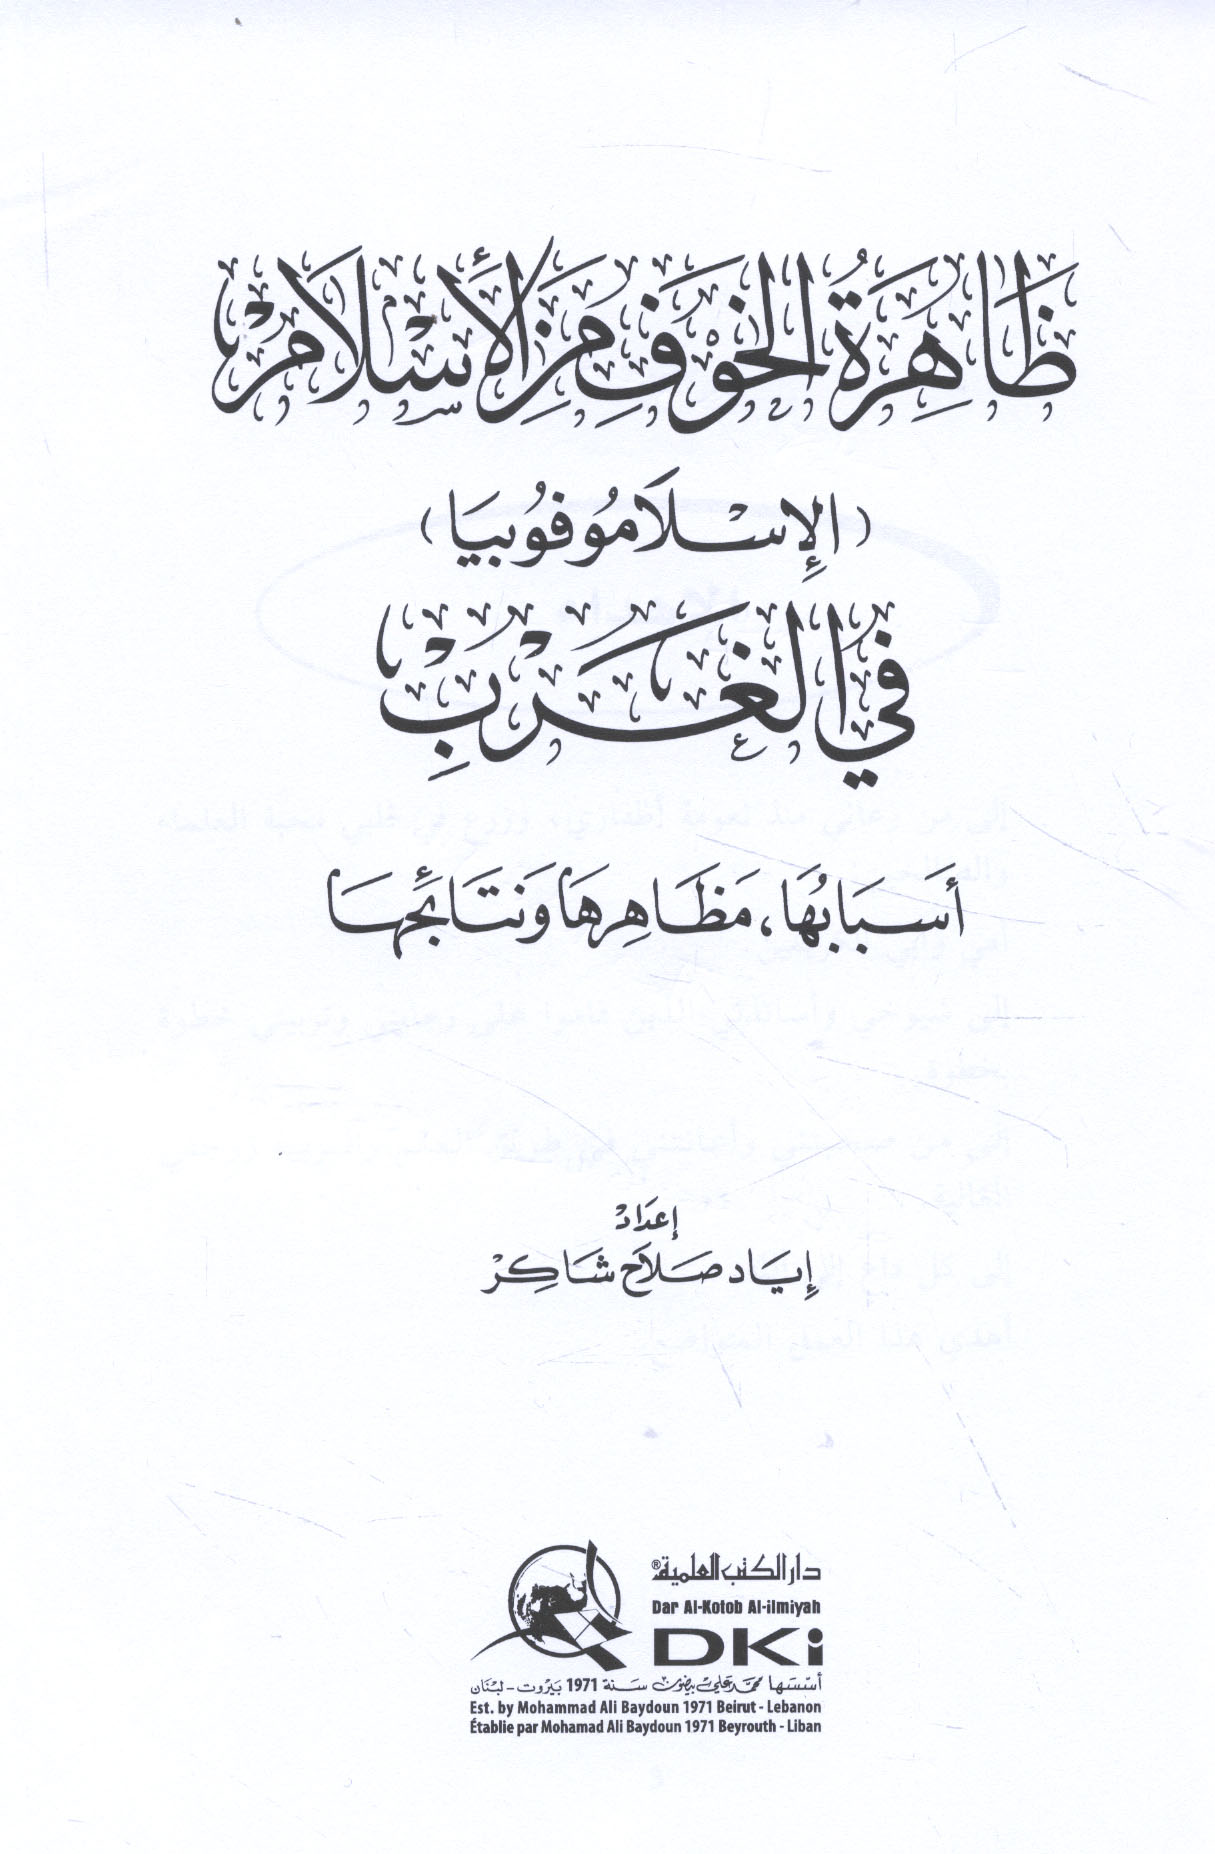 ظَاهِرَةُ الخَوْفِ مِنَ الأِسْلَامْ
(الإِسْلَامُوفُوبيَا)
في الغَرْبِ
أَسبَابُهَا، مَظَاهِرهَا وَنتَائجُهَا
إعدَادْ
إيَاد صَلَاح شَاكِرْ
دار الكتب العلمية®
Dar Al-Kotob Al-ilmiyah
DKi
أسّسَها محمّد علي بيضون سَنة 1971 بَيْرُوت - لبْنَان
Est. by Mohammad Ali Baydoun 1971 Beirut - Lebanon
Établie par Mohamad Ali Baydoun 1971 Beyrouth - Liban